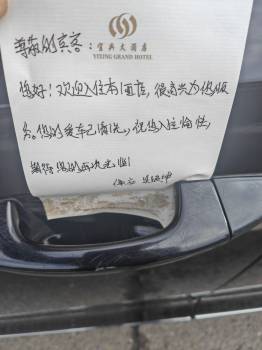 宜兴大酒店
YIXING GRAND HOTEL
尊敬的宾客:
您好!欢迎入住本酒店,很高兴为您服
务。您的爱车已清洗,祝您入住愉快,
期待您的再次光临!